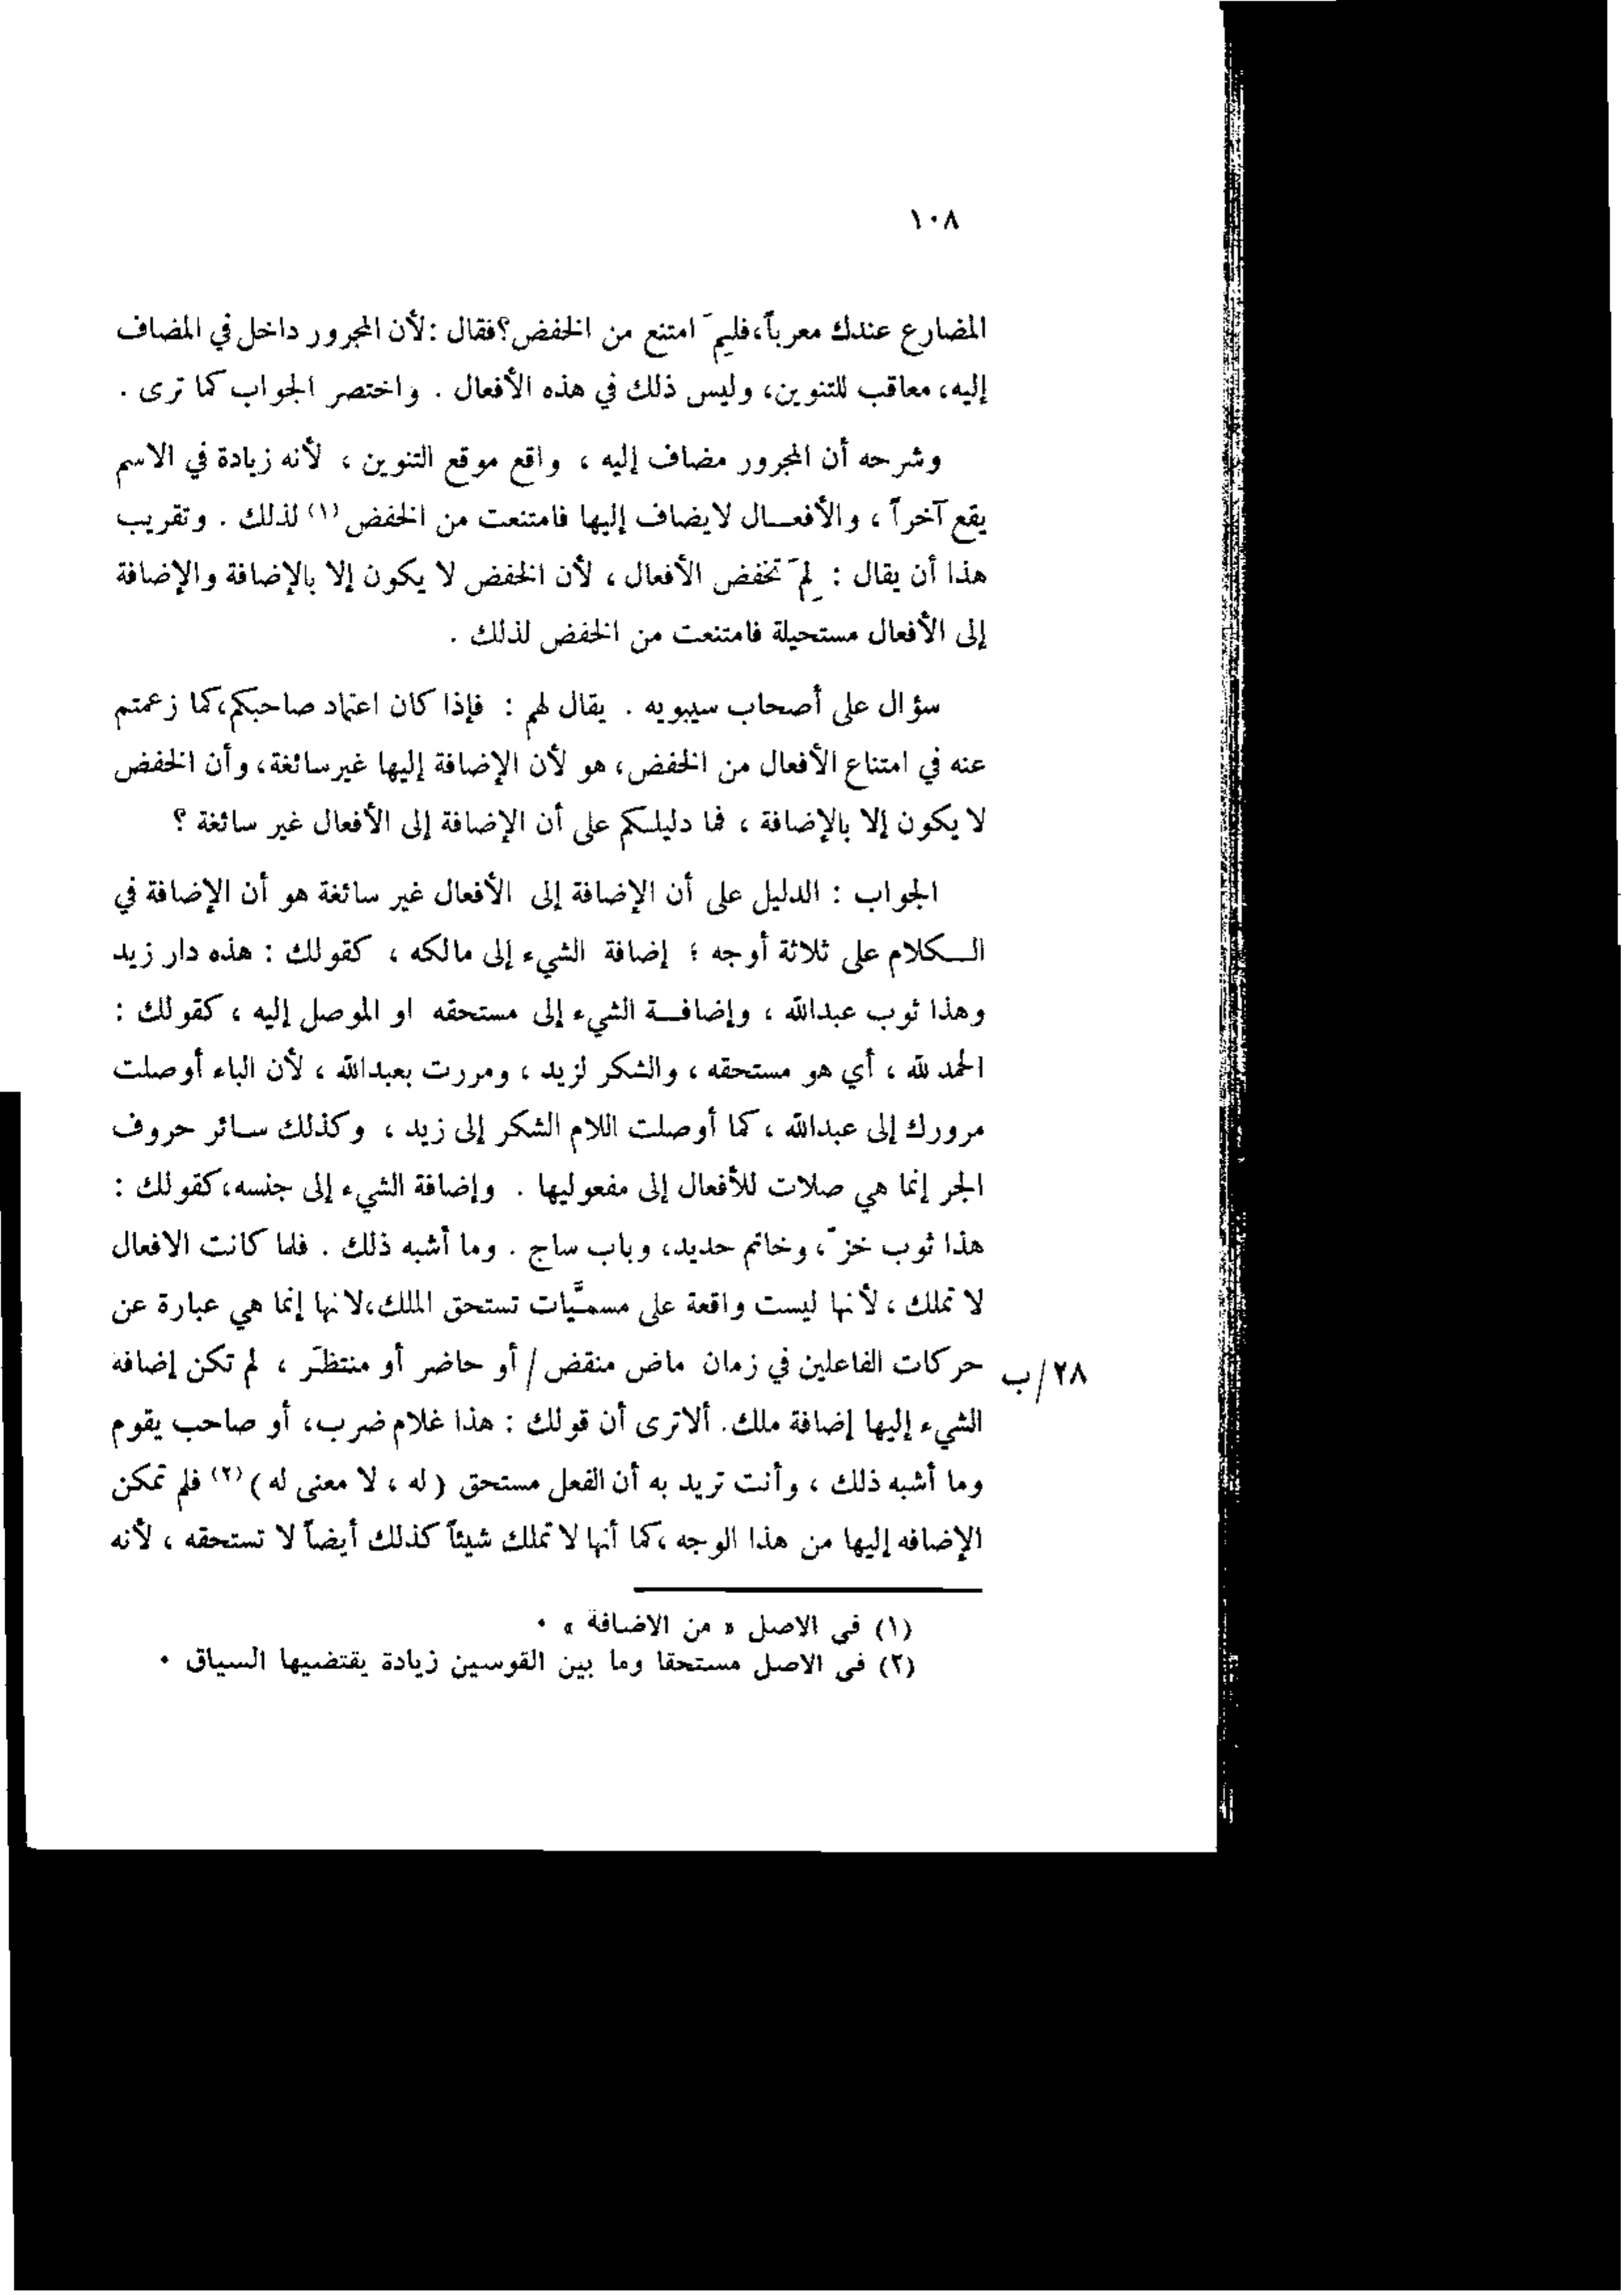 ١٠٨
المضارع عندك معرباً، فلِمَ امتنع من الخفض؟ فقال : لأن المجرور داخل في المضاف
إليه، معاقب للتنوين، وليس ذلك في هذه الأفعال . واختصر الجواب كما ترى .
وشرحه أن المجرور مضاف إليه ، واقع موقع التنوين ، لأنه زيادة في الاسم
يقع آخراً ، والأفعال لايضاف إليها فامتنعت من الخفض (١) لذلك . وتقريب
هذا أن يقال : لِمَ تخفض الأفعال ، لأن الخفض لا يكون إلا بالإضافة والإضافة
إلى الأفعال مستحيلة فامتنعت من الخفض لذلك .
سؤال على أصحاب سيبويه . يقال لهم : فإذا كان اعتماد صاحبكم، كما زعمتم
عنه في امتناع الأفعال من الخفض، هو لأن الإضافة إليها غير سائغة، وأن الخفض
لا يكون إلا بالإضافة ، فما دليلكم على أن الإضافة إلى الأفعال غير سائغة ؟
الجواب : الدليل على أن الإضافة إلى الأفعال غير سائغة هو أن الإضافة في
الكلام على ثلاثة أوجه ؛ إضافة الشيء إلى مالكه ، كقولك : هذه دار زيد
وهذا ثوب عبدالله ، وإضافة الشيء إلى مستحقه او الموصل إليه ، كقولك :
الحمد لله ، أي هو مستحقه ، والشكر لزيد ، ومررت بعبدالله ، لأن الباء أوصلت
مرورك إلى عبدالله ، كما أوصلت اللام الشكر إلى زيد ، وكذلك سائر حروف
الجر إنما هي صلات للأفعال إلى مفعوليها . وإضافة الشيء إلى جنسه، كقولك :
هذا ثوب خزّ، وخاتم حديد، وباب ساج . وما أشبه ذلك . فلما كانت الافعال
لا تملك ، لأنها ليست واقعة على مسمَّيات تستحق الملك، لانها إنما هي عبارة عن
حركات الفاعلين في زمان ماض منقض / أو حاضر أو منتظَر ، لم تكن إضافه ٢٨/ب
الشيء إليها إضافة ملك. ألاترى أن قولك : هذا غلام ضرب، أو صاحب يقوم
وما أشبه ذلك ، وأنت تريد به أن الفعل مستحق ( له ، لا معنى له ) (٢) فلم تمكن
الإضافه إليها من هذا الوجه ، كما أنها لا تملك شيئاً كذلك أيضاً لا تستحقه ، لأنه
(١) في الاصل « من الاضافة » ٠
(٢) في الاصل مستحقا وما بين القوسين زيادة يقتضيها السياق ٠